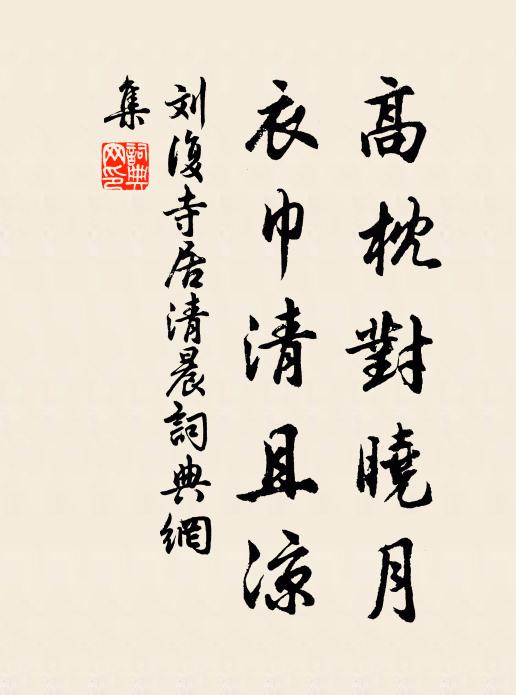 高枕對曉月
衣巾清且涼
刘復寺居清晨詞典網
集
詞典網印